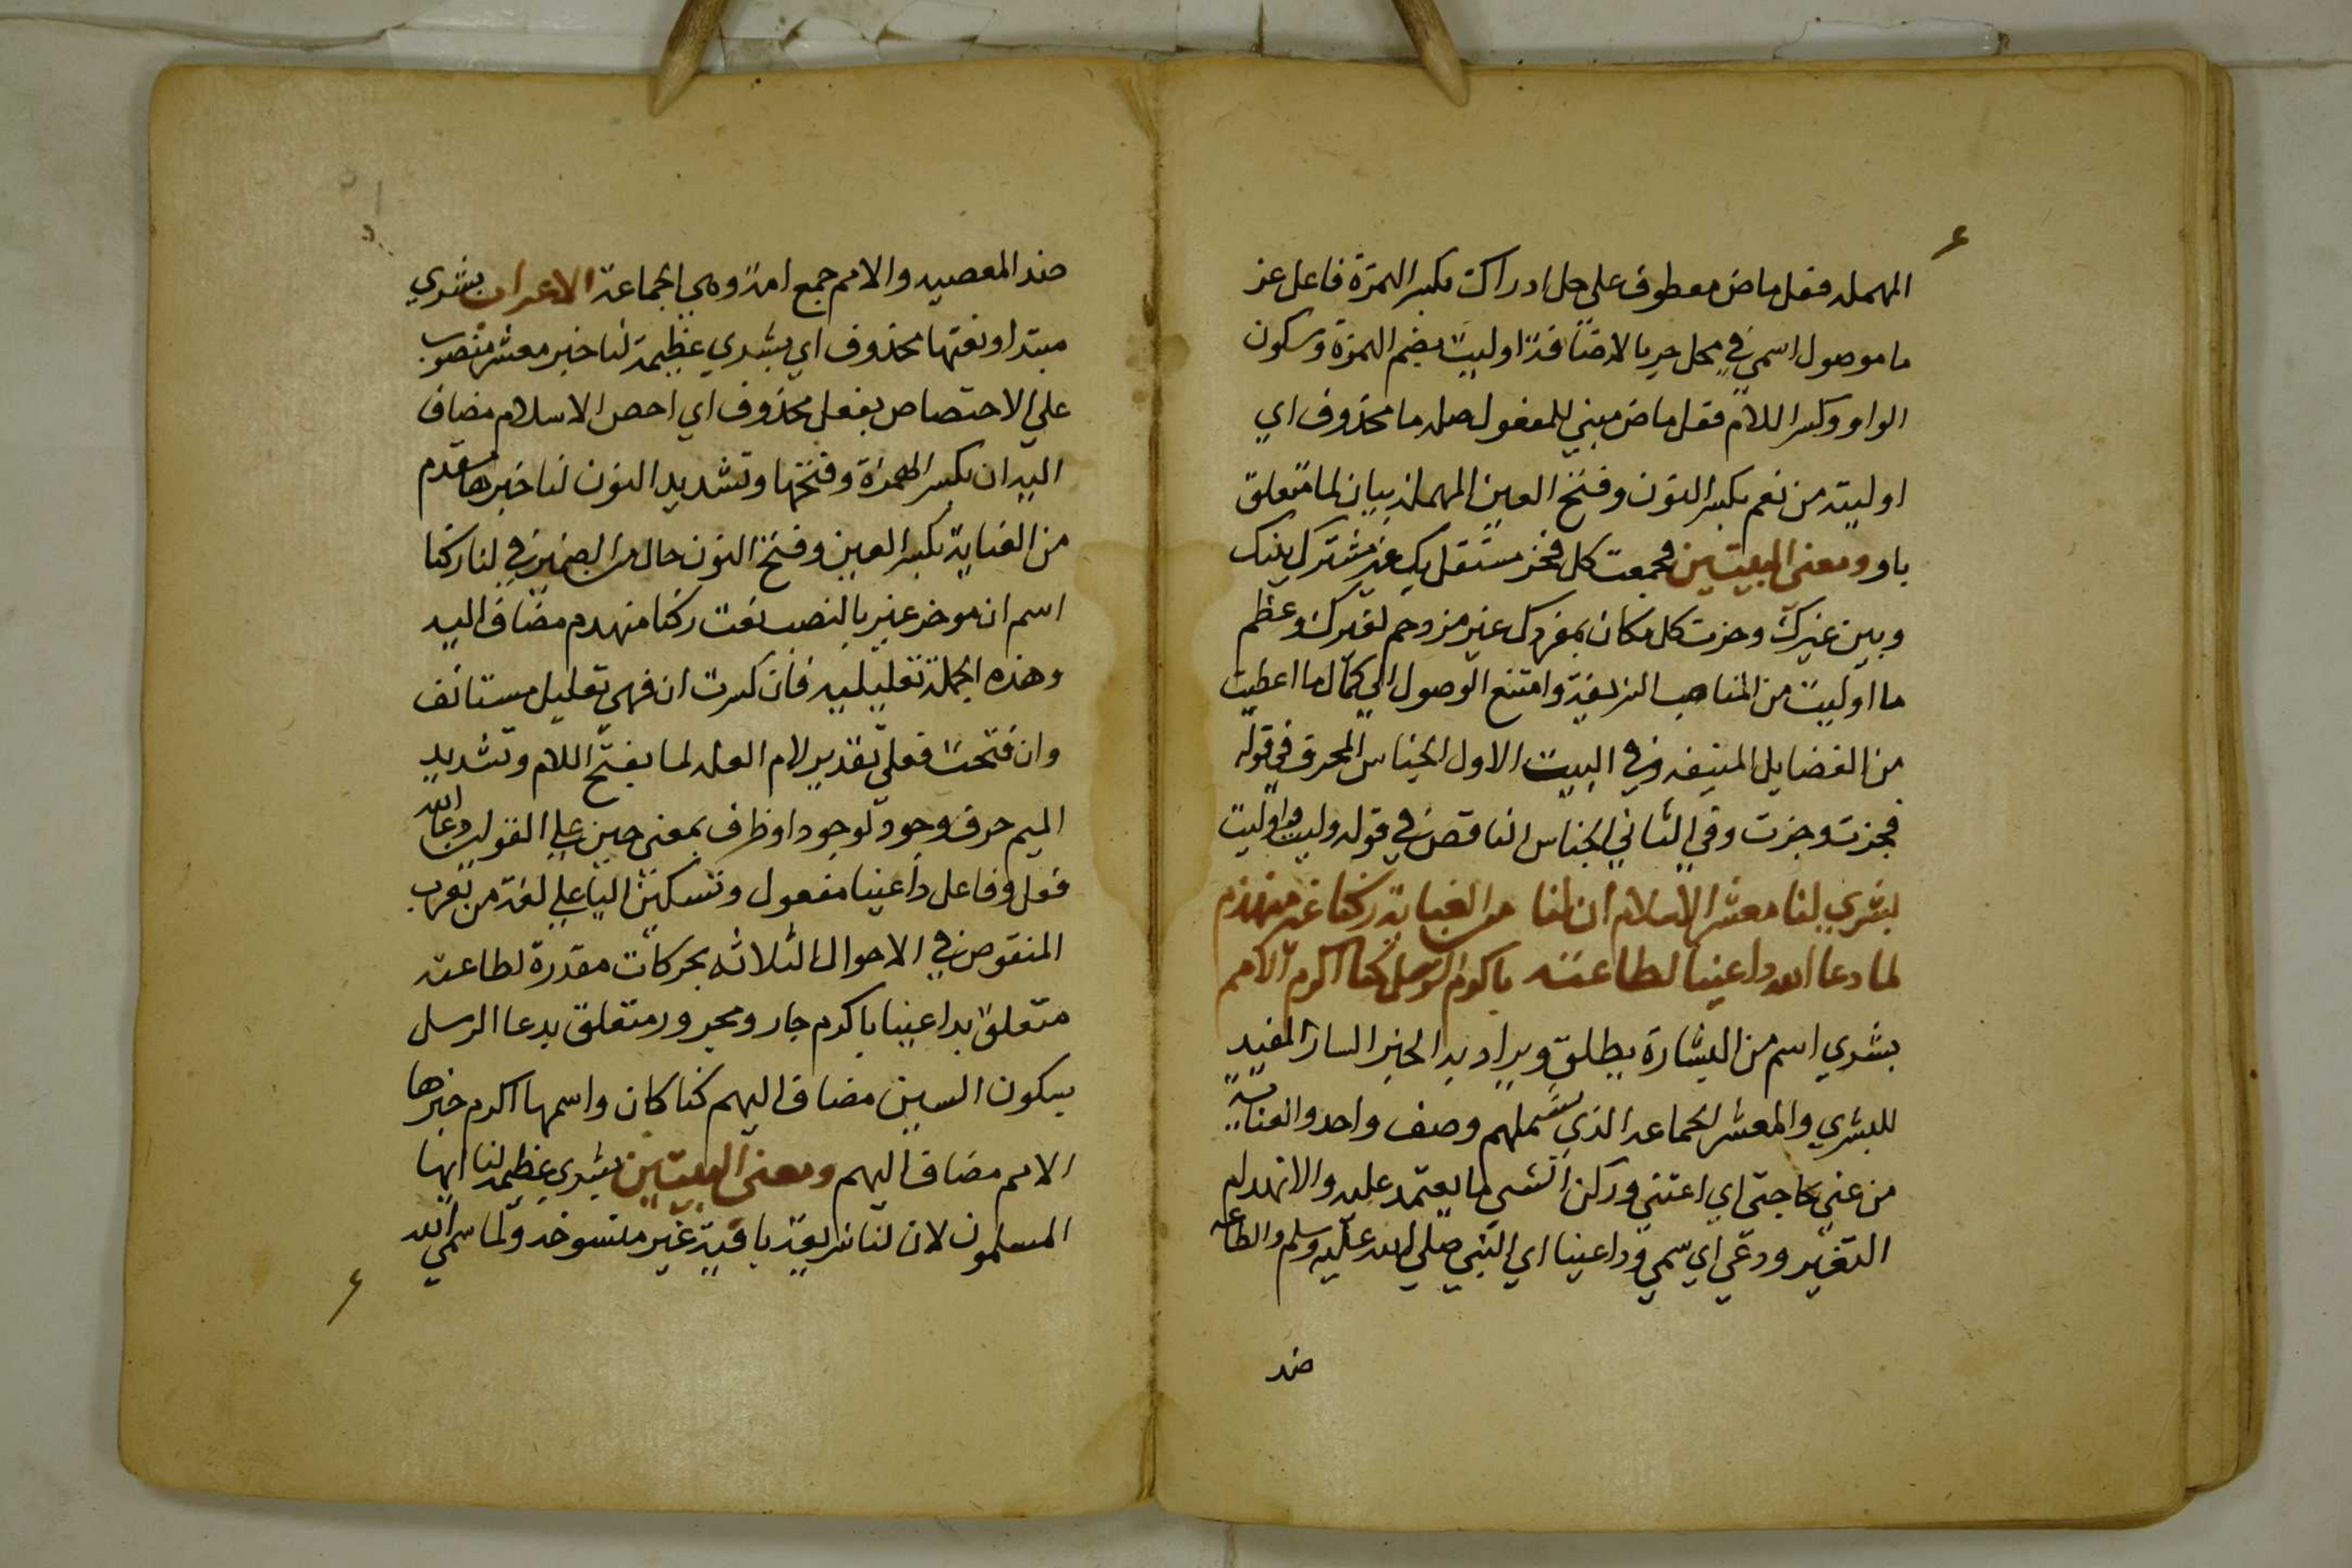 المهمله فعل ماض معطوف علي جل ادراك بكسر الهمزة فاعل عز
ما موصول اسمي في محل جر بالاضافة اوليت بضم الهمزة وسكون
الواو وكسر اللام فعل ماض مبني للمفعول صله ما محذوف اي
اوليته من نعم بكسر النون وفتح العين المهملة بيان لما متعلق
باو ومعني البيتين فجمعت كل فخر مستقل بك غير مشترك بينك
وبين غيرك وحزت كل مكان بمفردك غير مزدحم لغيرك وعظم
ما اوليت من المناصب الشريفة وامتنع الوصول الي كمال ما اعطيت
من الفضايل المنيفه وفي البيت الاول الجناس المحرف في قوله
فحزت وجزت وفي الثاني الجناس الناقص في قوله وليت واوليت
بشري لنا معشر الاسلام ان لنا من العناية ركنا غير منهدم
لما دعا الله داعينا لطاعته باكرم الرسل كنا اكرم الامم
بشري اسم من البشارة يطلق ويراد به الخبر السار المفيد
للبشري والمعشر الجماعه الذي يشملهم وصف واحد والعناية
من عني بحاجتي اي اعتني وركن الشي ما يعتمد عليه والانهدام
التغير ودعي اي سمي وداعينا اي النبي صلي الله عليه وسلم والطاعه
ضد
ضد المعصيه والامم جمع امة وهي الجماعة الاعراب بشري
مبتدا ونعتها محذوف اي بشري عظيمة لنا خبر معشر منصوب
علي الاختصاص بفعل محذوف اي اخص الاسلام مضاف
اليه ان بكسر الهمزة وفتحها وتشديد النون لنا خبرها مقدم
من العناية بكسر العين وفتح النون حال من الضمير في لنا ركنا
اسم ان موخر غير بالنصب نعت ركنا منهدم مضاف اليه
وهذه الجملة تعليليه فان كسرت ان فهي تعليل مستانف
وان فتحت فعلي تقدير لام العله لما بفتح اللام وتشديد
الميم حرف وجود لوجود او ظرف بمعني حين علي القولين دعا الله
فعل وفاعل داعينا مفعول وتسكين اليا علي لغة من يعرب
المنقوص في الاحوال الثلاثه بحركات مقدرة لطاعته
متعلق بداعينا باكرم جار ومجرور متعلق بدعا الرسل
بسكون السين مضاف اليهم كنا كان واسمها اكرم خبرها
الامم مضاف اليهم ومعني البيتين بشري عظيمه لنا ايها
المسلمون لان لنا شريعة باقية غير منسوخه ولما سمي الله